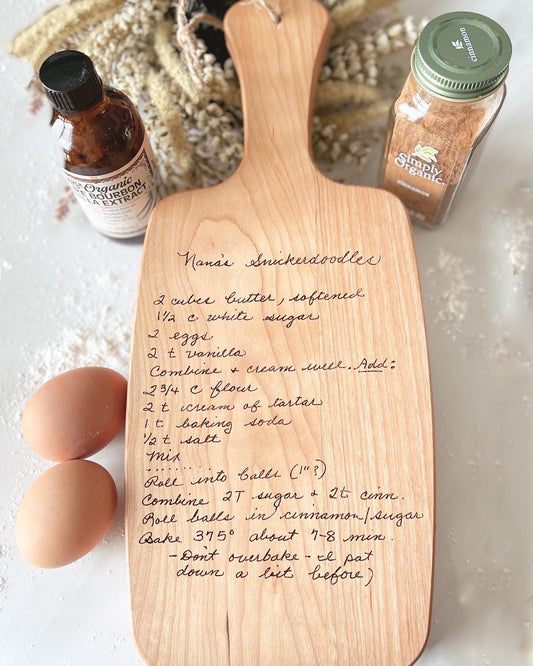 cinnamon
Simply
Organic
Organic
BOURBON
EXTRACT
Nana's Snickerdoodles
2 cubes butter, softened
1 1/2 c white sugar
2 eggs
2 t vanilla
Combine + cream well. Add:
2 3/4 c flour
2 t cream of tartar
1 t baking soda
1/2 t salt
Mix
.........
Roll into balls (1"?)
Combine 2T sugar + 2t cinn.
Roll balls in cinnamon/sugar
Bake 375° about 7-8 min.
-Don't overbake - I pat
down a bit before)